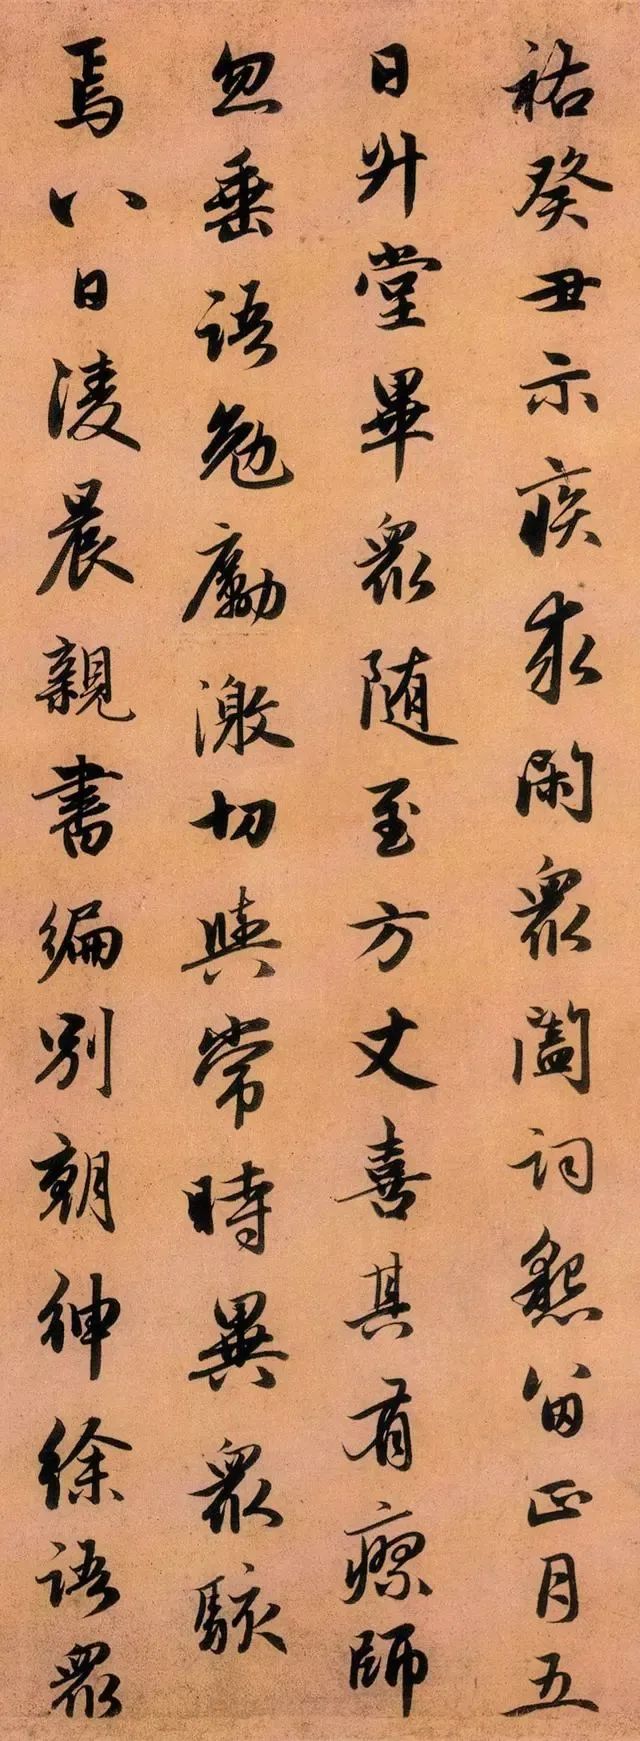 祐癸丑示疾求閑衆闔詞懇留正月五
日升堂畢衆随至方丈喜其有瘳師
忽垂語勉勵激切與常時異衆駭
焉八日凌晨親書編別朝紳徐語衆